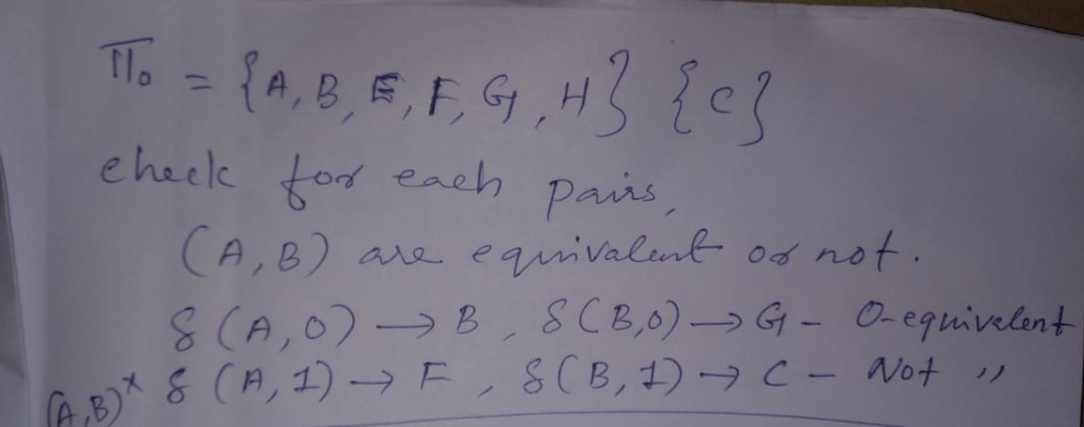 Π₀ = {A, B, E, F, G, H} {C}
check for each pairs,
(A, B) are equivalent or not.
δ (A, 0) → B, δ (B, 0) → G - 0-equivalent
(A, B)ˣ δ (A, 1) → F, δ (B, 1) → C - Not ,,